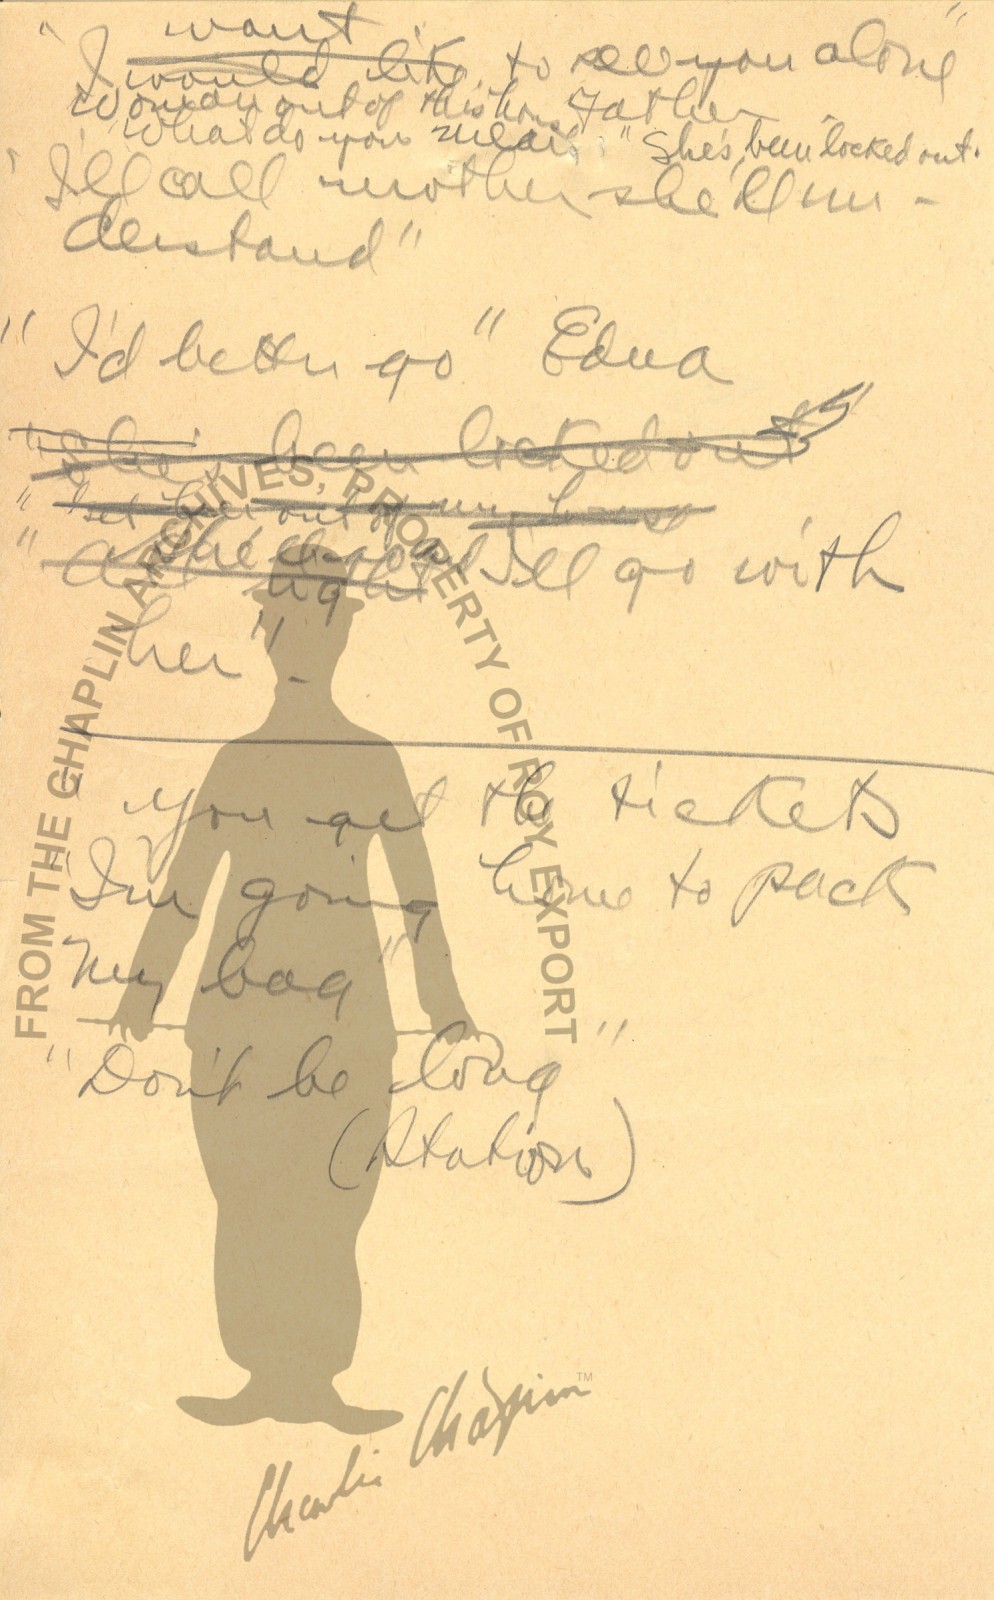 want
"I would like to see you alone"
Woman out of this house Father
"What do you mean: "She's been locked out.
"I'll call mother she'll un-
derstand"
"I'd better go" Edna
"She's been locked out"
"get her out of my house
She does I'll go with
"All right
her"-
You get the tickets
I'm going home to pack
My bag"
"Don't be long"
(Station)
FROM THE CHAPLIN ARCHIVES, PROPERTY OF ROY EXPORT
Charlie Chaplin™